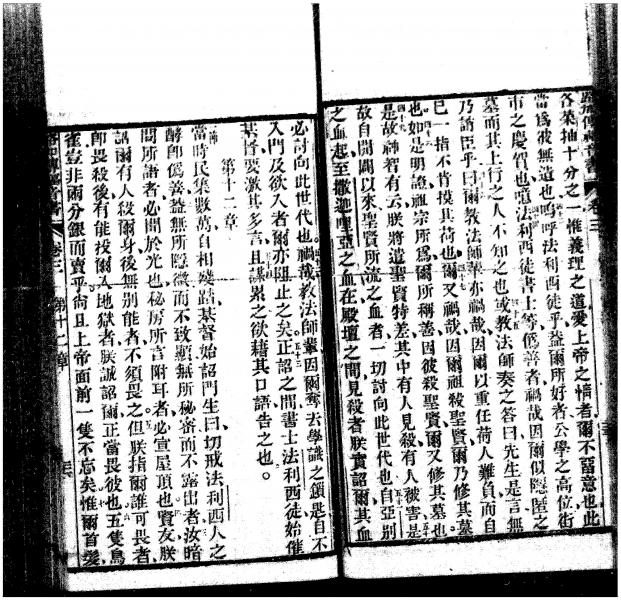 各菜抽十分之一惟義理之道愛上帝之情者爾不留意也此
當爲戒無遺也嗚呼法利西徒乎蓋爾所好者公學之高位街
市之慶賀也噫法利西徒書士等僞善者禍哉因爾似隱匿之
墓而其上行之人不知之也或教法師奏之答曰先生是言無
乃訪臣乎曰爾教法師輩亦禍哉因爾以重任荷人難負而自
已一指不肯摸其荷也爾又禍哉因爾祖殺聖賢爾乃修其墓
也如是明證祖宗所爲爾所稱善因彼殺聖賢爾又修其墓也
是故神智有云朕將遣聖賢特差其中有人見殺有人被害是
故自開闢以來聖賢所流之血者一切討向此世代也自亞別
之血起至撒迦哩亞之血在殿壇之間見殺者朕實詔爾其血
必討向此世代也禍哉教法師輩因爾奪去學識之鎖匙自不
入門及欲入者爾亦阻止之矣正詔之間書士法利西徒始催
基督要激其多言且謀累之欲藉其口語告之也。
第十二章
當時民集數萬自相殘踏基督始詔門生曰切戒法利西人之
酵卽僞善蓋無所隱微而不致顯無所秘密而不露出者汝暗
間所語者必聞於光也秘房所言附耳者必宣屋頂也賢友朕
詔爾有人殺爾身後無別能者不須畏之但朕指爾誰可畏者
卽畏殺後有能投爾入地獄者朕誠詔爾正當畏彼也五隻鳥
雀豈非兩分銀而賣乎尚且上帝面前一隻不忘矣惟爾首髮
卷三 第十二章